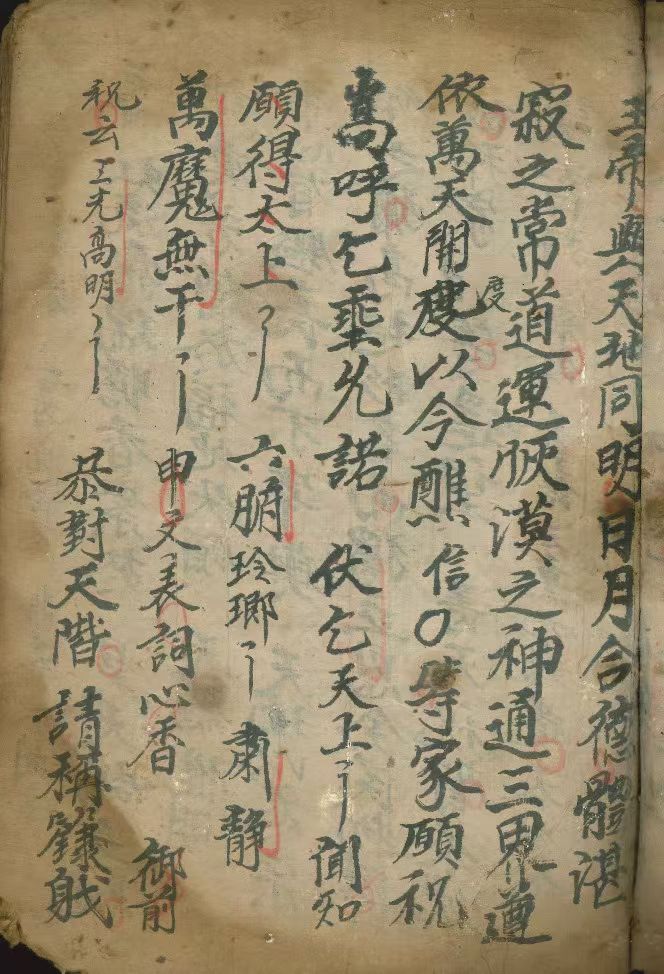 玉帝與天地同明日月合德體湛
寂之常道運賑漠之神通三界遵
依萬天開度以今醮信〇等家願祝
嵩呼乞垂允諾　伏乞天上〻聞知
願得太上〻　六腑玲瑯〻　肅静
萬魔無干〻　申文表詞心香　御前
祝云三光高明〻　恭對天階　請稱籙戝
度